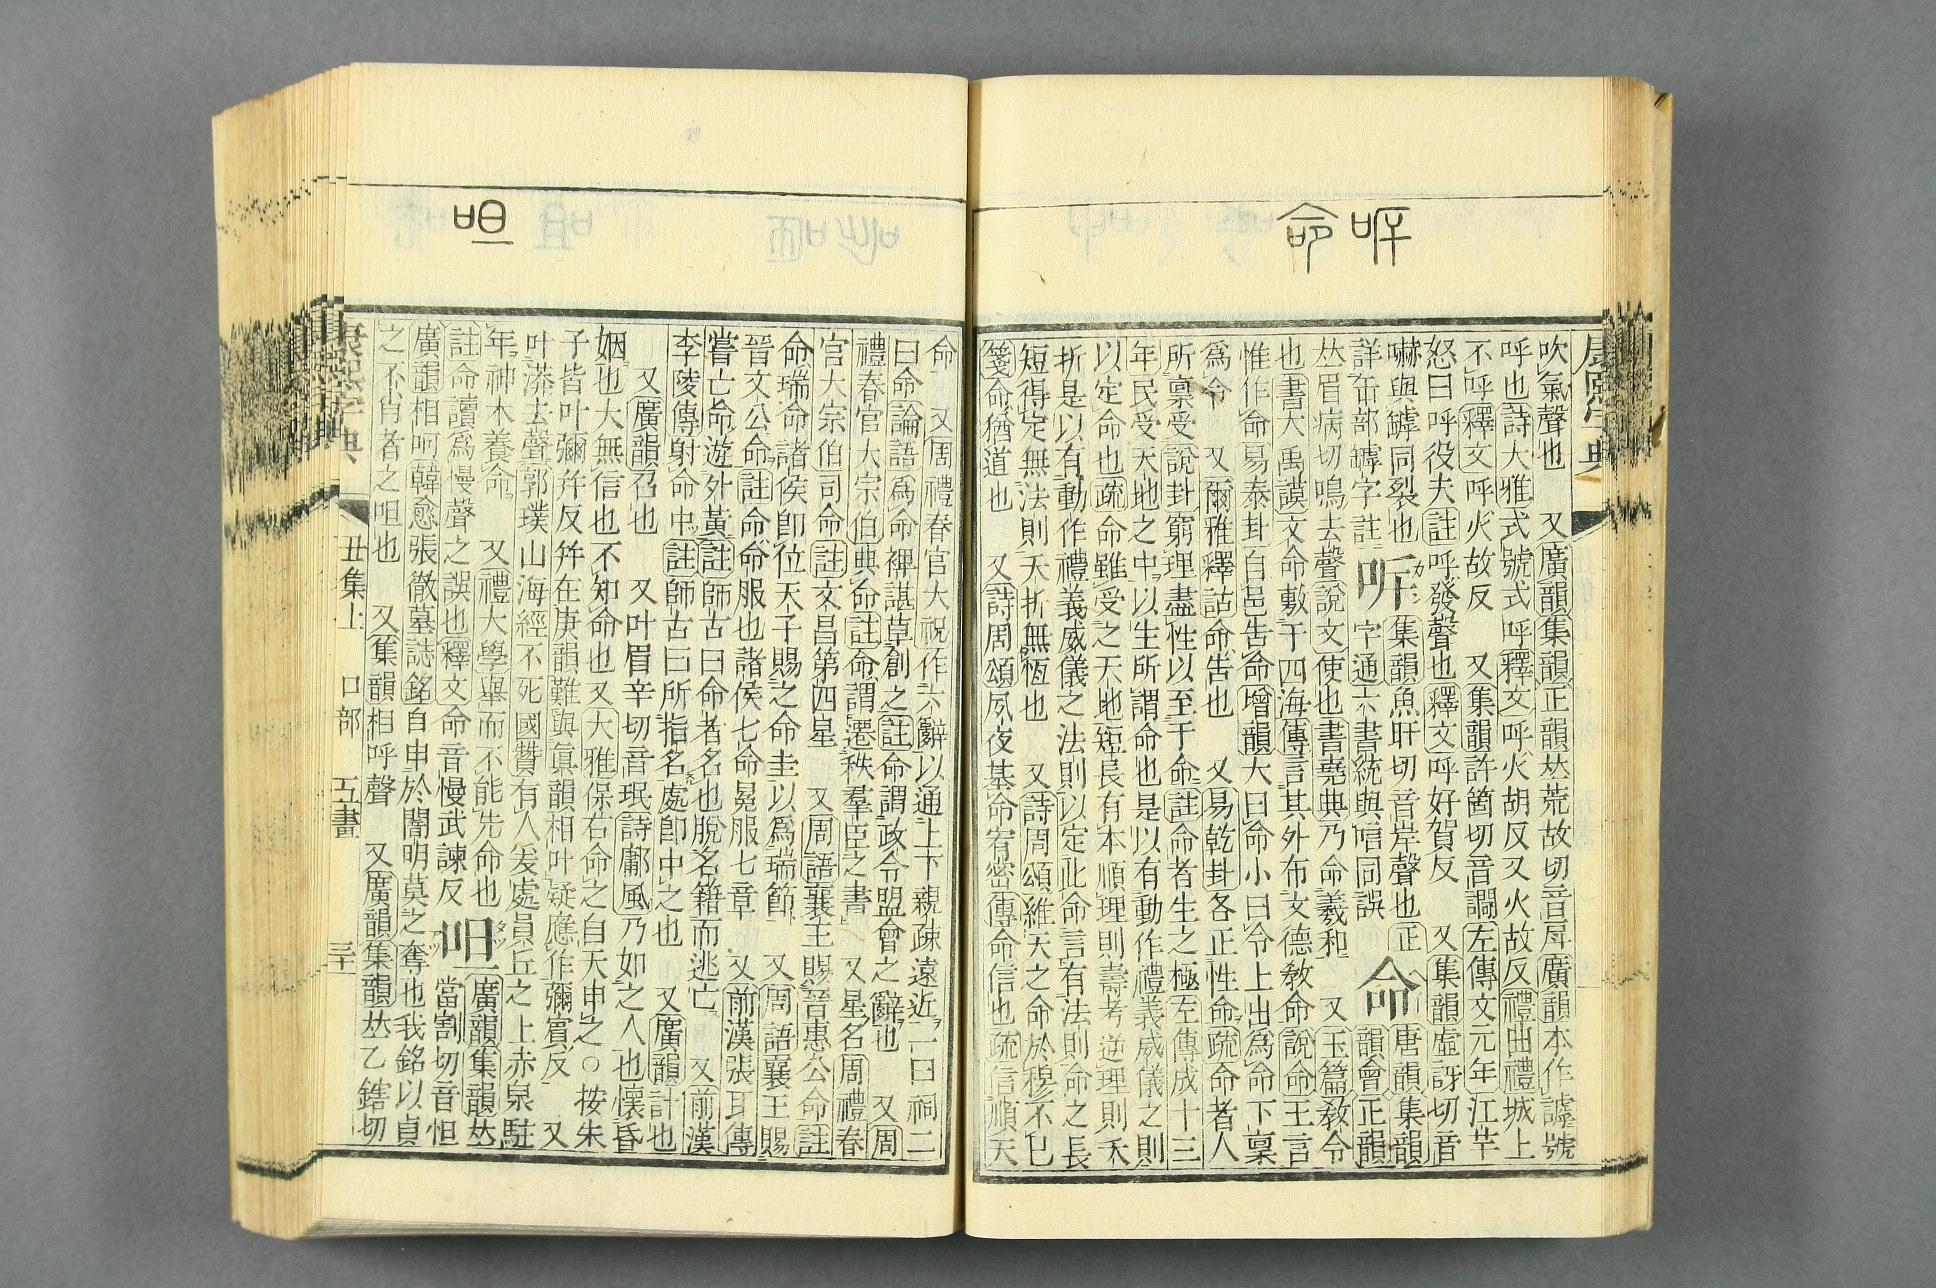 命 㖕
吹氣聲也 又廣韻集韻正韻𠀤荒故切音戽廣韻本作謼號
呼也詩大雅式號式呼釋文呼火胡反又火故反禮曲禮城上
不呼釋文呼火故反 又集韻許箇切音謌左傳文元年江芊
怒曰呼役夫註呼發聲也釋文呼好賀反 又集韻虛訝切音
嚇與罅同裂也
詳缶部罅字註 集韻魚旰切音岸聲也正
字通六書統與唁同誤 命 唐韻集韻
韻會正韻
𠀤眉病切鳴去聲說文使也書堯典乃命羲和 又玉篇敎令
也書大禹謨文命敷于四海傳言其外布文德敎命說命王言
惟作命易泰卦自邑告命增韻大曰命小曰令上出爲命下稟
爲令 又爾雅釋詁命告也 又易乾卦各正性命疏命者人
所稟受說卦窮理盡性以至于命註命者生之極左傳成十三
年民受天地之中以生所謂命也是以有動作禮義威儀之則
以定命也疏命雖受之天地短長有本順理則壽考逆理則夭
折是以有動作禮義威儀之法則以定此命言有法則命之長
短得定無法則夭折無恆也 又詩周頌維天之命於穆不已
箋命猶道也 又詩周頌夙夜基命宥密傳命信也疏信順天
康熙字典
呾
命 又周禮春官大祝作六辭以通上下親疎遠近一曰祠二
曰命論語爲命裨諶草創之註命謂政令盟會之辭也 又周
禮春官大宗伯典命註命謂遷秩羣臣之書 又星名周禮春
官大宗伯司命註文昌第四星 又周語襄王賜晉惠公命註
命瑞命諸侯卽位天子賜之命圭以爲瑞節 又周語襄王賜
晉文公命註命命服也諸侯七命冕服七章 又前漢張耳傳
嘗亡命遊外黃註師古曰命者名也脫名籍而逃亡 又前漢
李陵傳射命中註師古曰所指名處卽中之也 又廣韻計也
又廣韻召也 又叶眉辛切音珉詩鄘風乃如之人也懷昏
姻也大無信也不知命也又大雅保右命之自天申之○按朱
子皆叶彌幷反幷在庚韻難與眞韻相叶疑應作彌賓反 又
叶漭去聲郭璞山海經不死國贊有人爰處員丘之上赤泉駐
年神木養命 又禮大學舉而不能先命也
註命讀爲慢聲之誤也釋文命音慢武諫反 呾 廣韻集韻𠀤
當割切音怛
廣韻相呵韓愈張徹墓誌銘自申於闇明莫之奪也我銘以貞
之不肖者之呾也 又集韻相呼聲 又廣韻集韻𠀤乙鎋切
康熙字典 丑集上 口部 五畫 三十